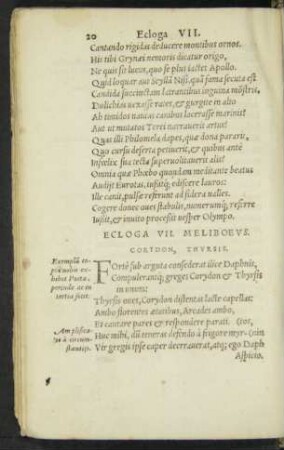 20 Ecloga VII.
Cantando rigidas deducere montibus ornos.
His tibi Grynæi nemoris dicatur origo,
Ne quis sit lucus, quo se plus iactet Apollo.
Quid loquar aut Scyllã Nisi, quã fama secuta est
Candida succinctam latrantibus inguina mõstris,
Dulichias vexasse rates, & gurgite in alto
Ah timidos nautas canibus lacerasse marinis?
Aut ut mutatos Terei narrauerit artus?
Quas illi Philomela dapes, quæ dona pararit,
Quo cursu deserta petiuerit, & quibus antè
Infœlix sua tecta superuolitauerit alis?
Omnia quæ Phœbo quondam meditante beatus
Audijt Eurotas, iussitq; ediscere lauros:
Ille canit, pulsæ referunt ad sidera valles.
Cogere donec oues stabulis, numerumq; referre
Iussit, & inuito processit uesper Olympo.
ECLOGA VII. MELIBOEVS.
CORYDON, THYRSIS.
Forté sub arguta consederat ilice Daphnis,
Compulerantq; greges Corydon & Thyrsis
in unum:
Thyrsis oues, Corydon distentas lacte capellas:
Ambo florentes ætatibus, Arcades ambo,
Et cantare pares & respondere parati. (tos,
Huc mihi, dũ teneras defendo à frigore myr-
Vir gregis ipse caper deerrauerat, atq; ego Daph
Aspicio.